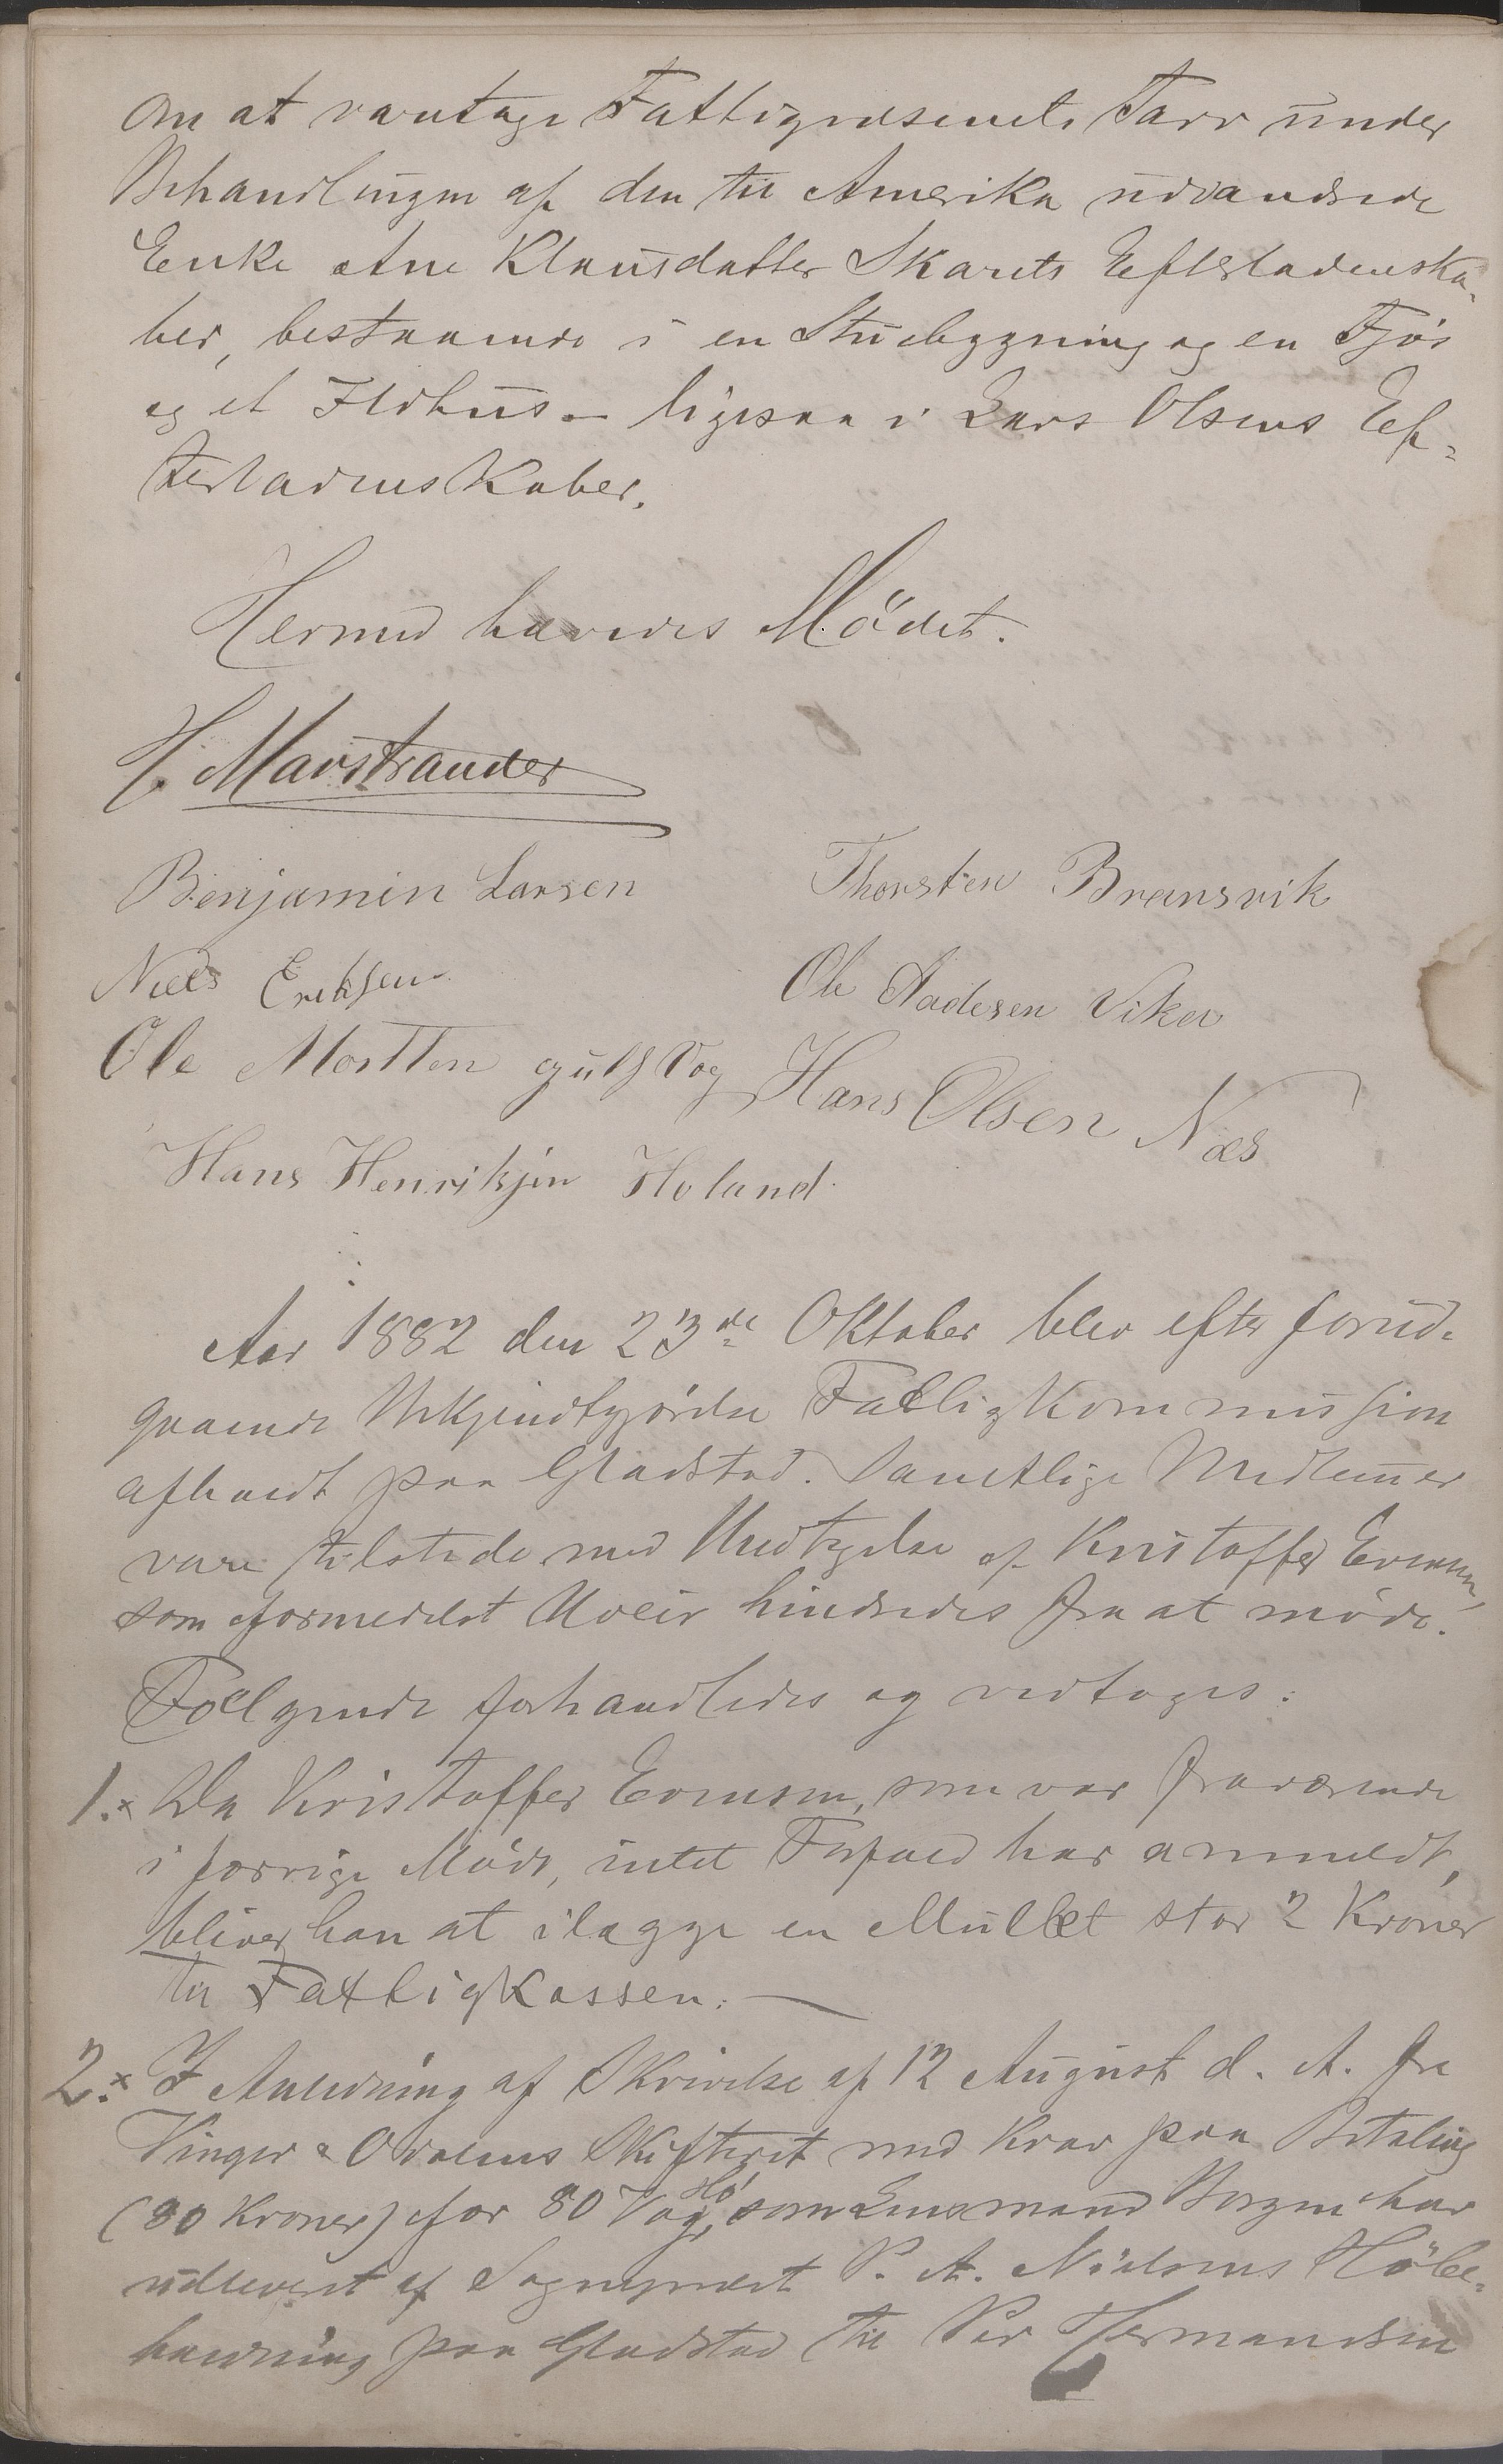 om at varetage Fattigvæsenets Tarv under
Behandlingen af den til Amerika udvandrede
Enke Ane Klausdatter Skarets Efterladenska-
ber, bestaaende i en Stuebygning og en Fjös
og et Ildhus – ligesaa i Lars Olsens Ef-
terladenskaber.
Hermed hævedes Mödet.
H. Marstrander
Benjamin Larsen Thorsten Brænsvik
Niels Eriksen Ole Aadesen Viker
Ole Mortten gulsvog Hans Olsen Næs
Hans Henriksjen Holand.
Aar 1882 den 23de Oktober blev efter forud-
gaaende Bekjendtgjørelse Fattigkommission
afholdt paa Gladstad. Samtlige Medlemmer
vare tilstede med Undtagelse af Kristoffer Evensen,
som formedelst Uveir hindredes fra at møde.
Föelgende forhandledes og vedtoges:
1. x Da Kristoffer Evensen, som var fraværende
i forrige Møde, intet Forfald har anmeldt,
bliver han at ilægge en Mullet stor 2 Kroner
til Fattigkassen. —
2. x I Anledning af Skrivelse af 12 August d. A. fra
Vinger & Odalens Skifteret med Krav paa Betaling
(80 Kroner) for 80 Vog Hö, som Lensmand Borgen har
udleveret af Sogneprest P. A. Nielsens Höbe-
holdning paa Gladstad til Per Hermandsen